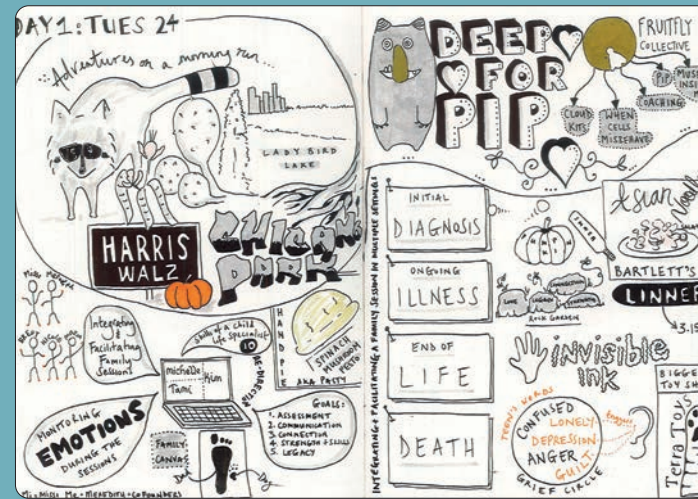 DAY 1: TUES 24
Adventures on a morning run...
LADY BIRD
LAKE
HARRIS
WALZ
CHICANO
PARK
Integrating
&
Facilitating
Family
Sessions
Skills of a Child
Life Specialist
10
michelle
Kim
Tami
HAND PIE
SPINACH
MUSHROOM
PESTO
AKA PASTY
MONITORING
EMOTIONS
DURING THE
SESSIONS
FAMILY
CANVAS
GOALS:
1. ASSESSMENT
2. COMMUNICATION
3. CONNECTION
4. STRENGTH + SKILLS
5. LEGACY
DEEP
FOR
PIP
FRUITFLY
COLLECTIVE
PIP
COACHING
CLOUD
KITS
WHEN
CELLS
MISBEHAVE
INTEGRATING + FACILITATING A FAMILY SESSION IN MULTIPLE SETTINGS
INITIAL
DIAGNOSIS
ONGOING
ILLNESS
END OF
LIFE
DEATH
Asian
BARTLETT'S
LINNER
LOVE
LEGACY
CONNECTION
STRENGTH
ROCK GARDEN
INVISIBLE
INK
TEEN'S WORDS
CONFUSED
LONELY
DEPRESSION
ANGER
GUILT
GRIEF CIRCLE
Terra Toys